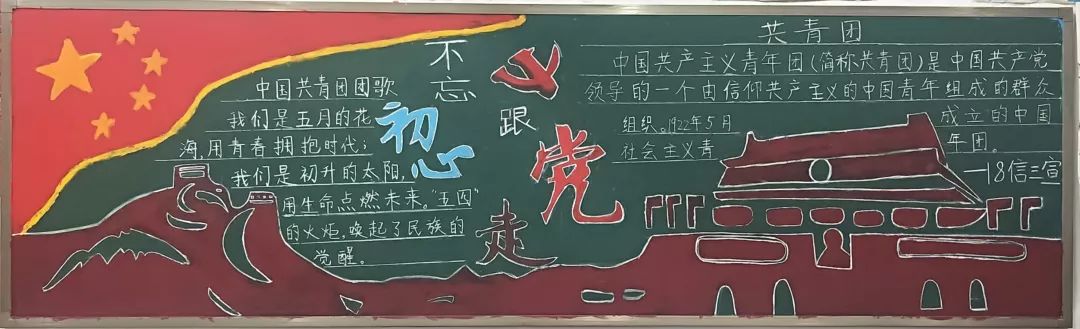 中国共青团团歌
我们是五月的花
海,用青春拥抱时代;
我们是初升的太阳,
用生命点燃未来。"五四"
的火炬,唤起了民族的
觉醒。
不忘
初心
跟
党
走
共青团
中国共产主义青年团(简称共青团)是中国共产党
领导的一个由信仰共产主义的中国青年组成的群众
组织。1922年5月 成立的中国
社会主义青 年团。
—18信三宣